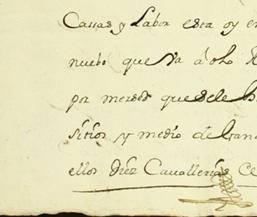 Cassas y Labor esta oy en
nuebo que va a dho
por merced que de le h
sitios y medio de Gana
ellos diez Cavallerias Ce